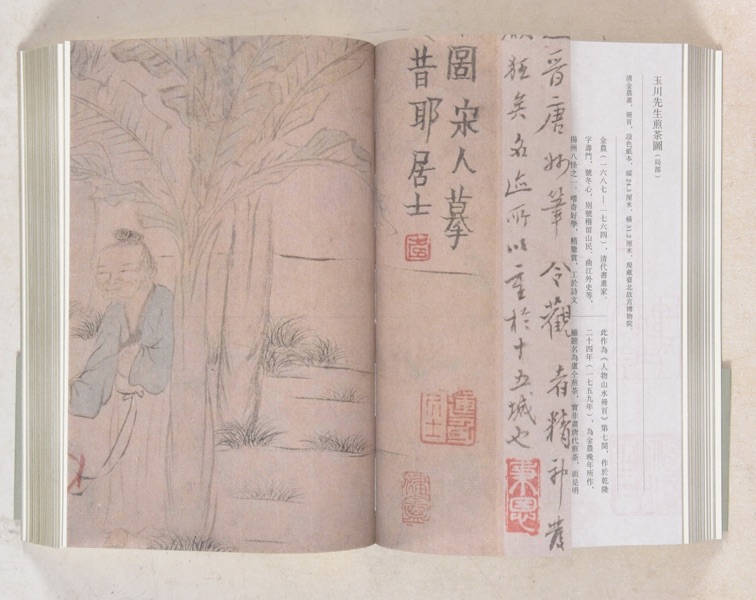 玉川先生煎茶圖(局部)
清金農畫,冊頁,設色紙本,縱24.3厘米,橫31.2厘米,現藏臺北故宮博物院。
金農(一六八七—一七六四),清代書畫家,
字壽門,號冬心,別號稽留山民、曲江外史等,
揚州八怪之一。嗜奇好學,精鑒賞,工於詩文
此作為《人物山水冊頁》第七開,作於乾隆
二十四年(一七五九年),為金農晚年所作,
雖題名為盧仝煎茶,實非畫唐代煎茶,而是明
晉唐妙筆令觀者精神發
狂矣名迹所以重於十五城也
秉恩
圖宋人摹
昔耶居士